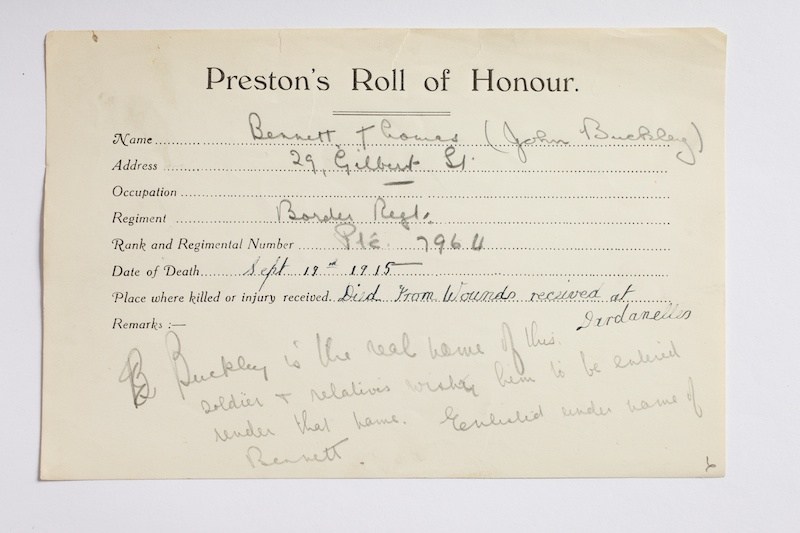 Preston's Roll of Honour.
Name Bennett, Thomas (John Buckley)
Address 29, Gilbert St.
Occupation
Regiment Border Regt.
Rank and Regimental Number Pte 7964
Date of Death Sept 19th 1915
Place where killed or injury received. Died From Wounds received at
Dardanelles
Remarks :—
B Buckley is the real name of this
soldier & relatives wish him to be entered
under that name. Enlisted under name of
Bennett.